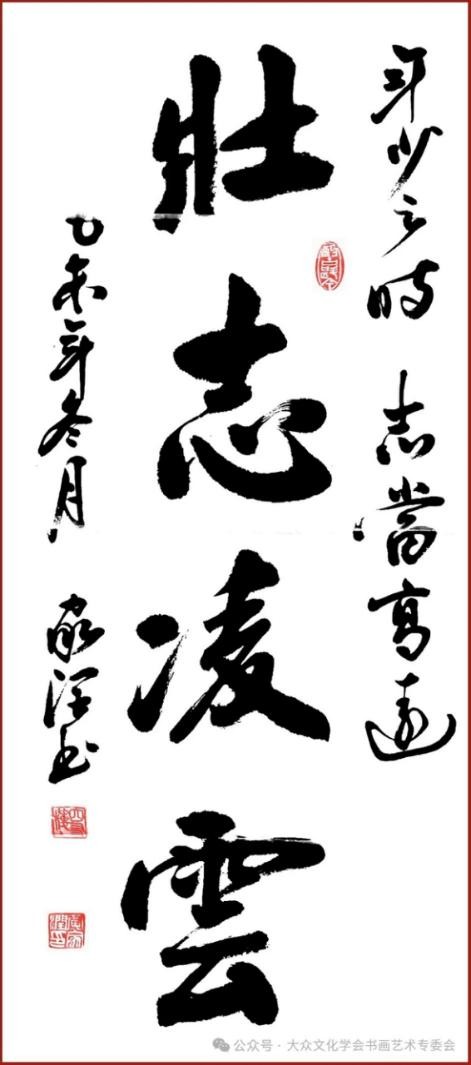 年少之時 志當高遠
壯志凌雲
乙未年冬月 家 书
公众号 · 大众文化学会书画艺术专委会